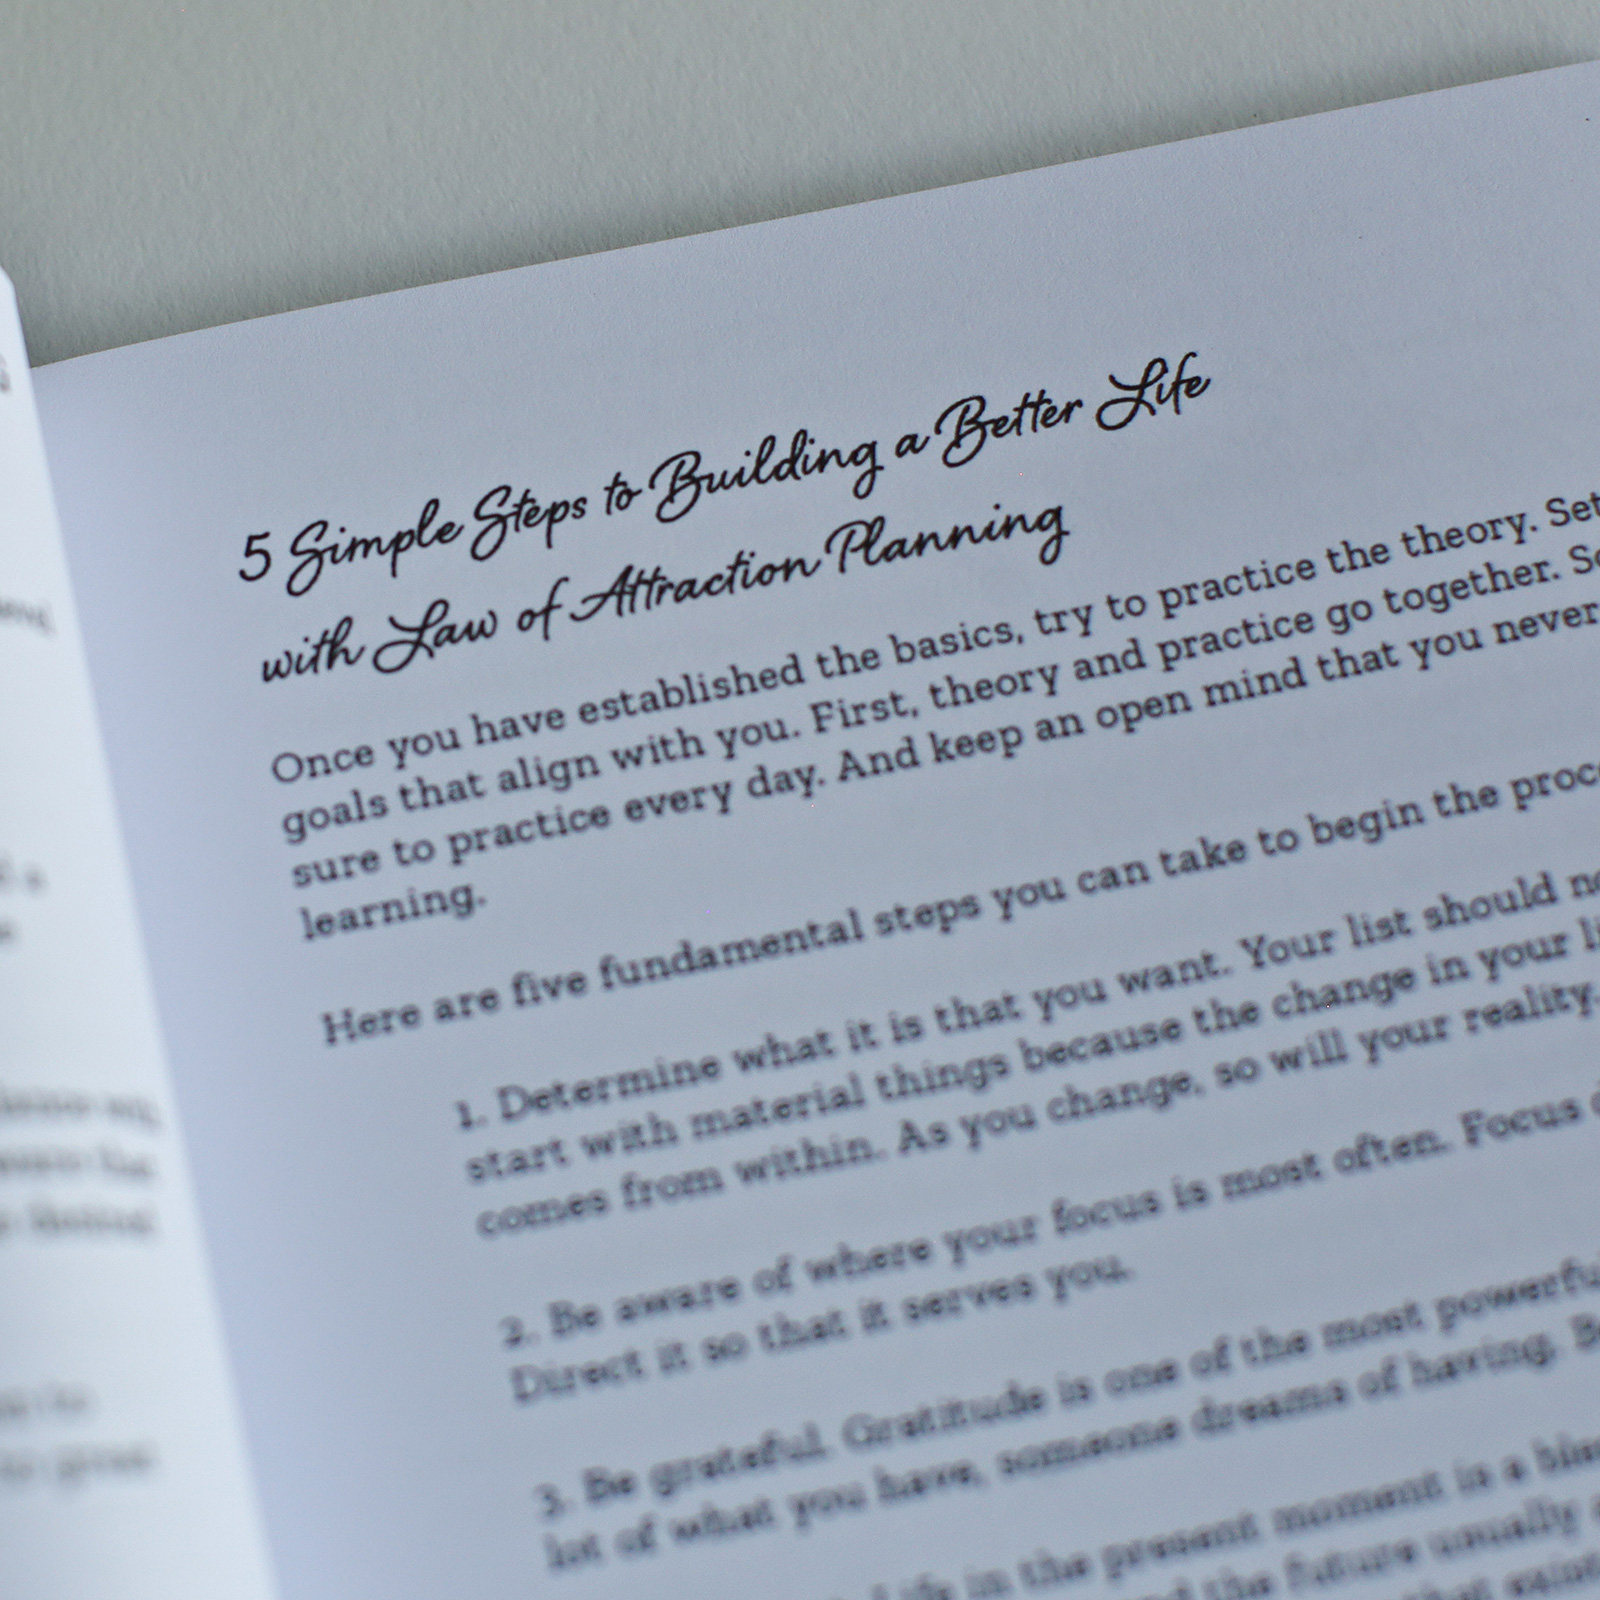 5 Simple Steps to Building a Better Life
with Law of Attraction Planning
Once you have established the basics, try to practice the theory. Set
goals that align with you. First, theory and practice go together.
sure to practice every day. And keep an open mind that you never
learning.
Here are five fundamental steps you can take to begin the
1. Determine what it is that you want. Your list should
start with material things because the change in your
comes from within. As you change, so will your reality.
2. Be aware of where your focus is most often. Focus
Direct it so that it serves you.
3. Be grateful. Gratitude is one of the most
lot of what you have, someone dreams of having.
in the present moment is a
the future usually